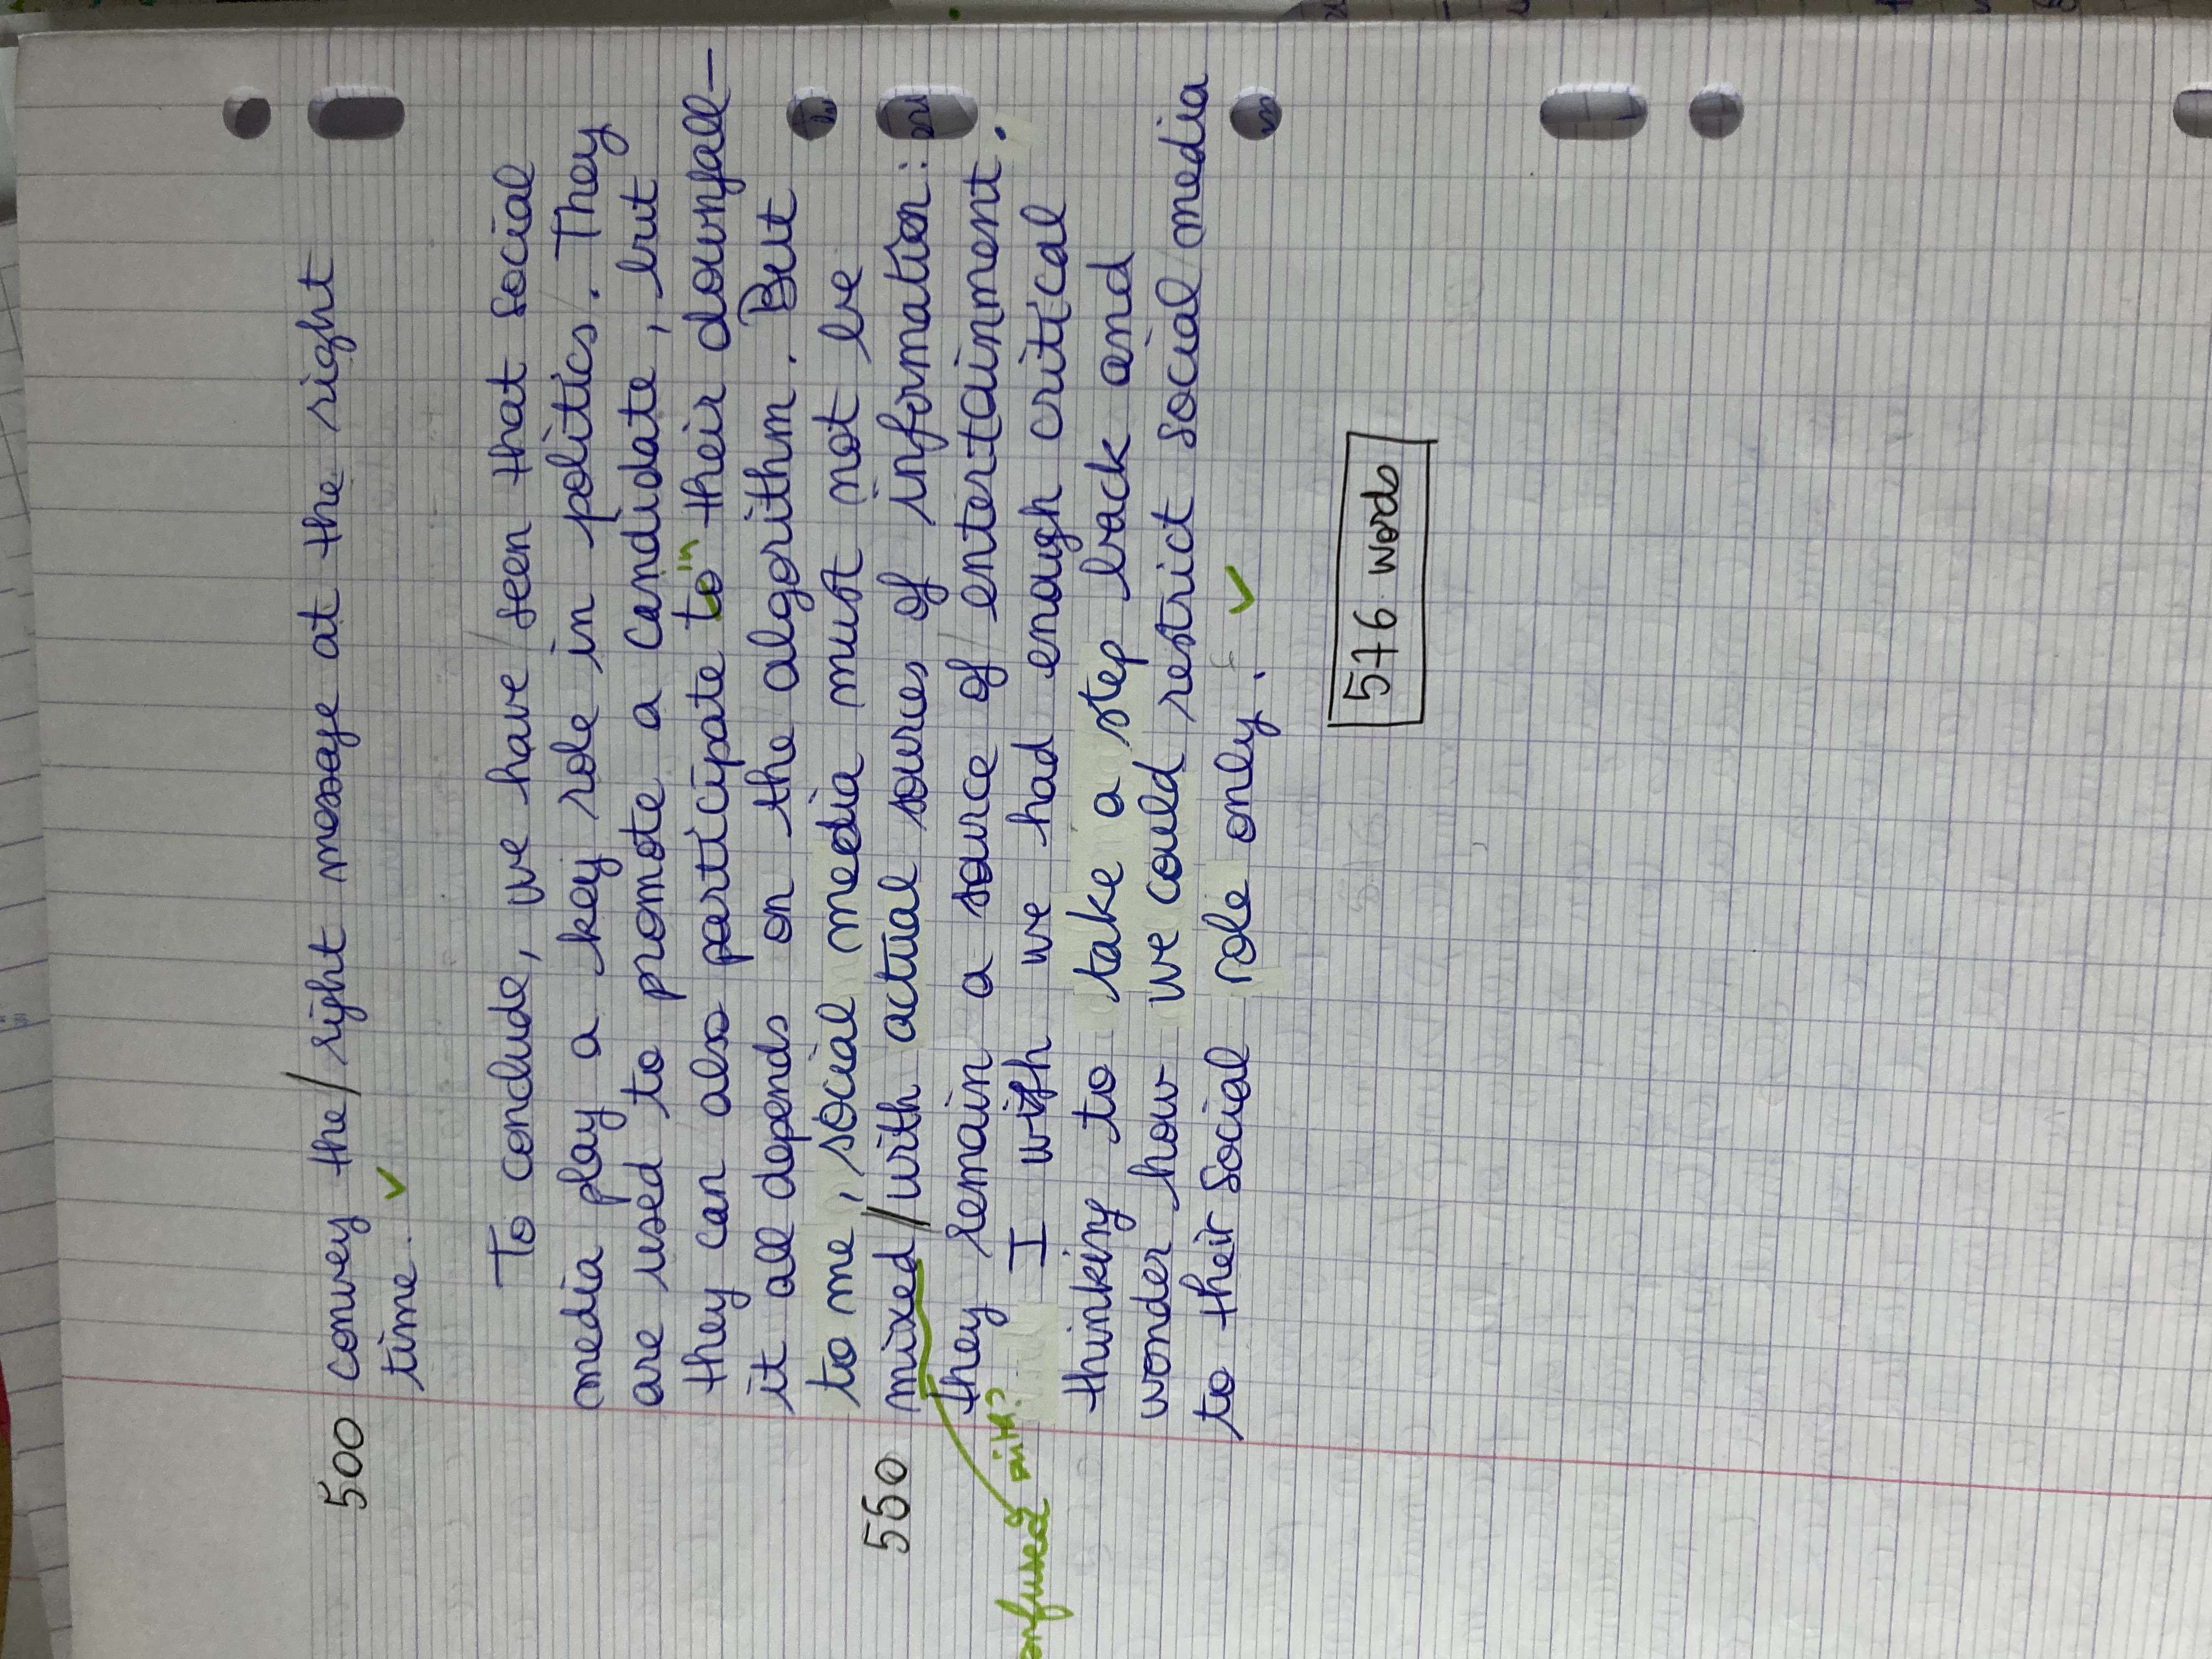 500 convey the / right message at the right
time.
To conclude, we have seen that social
media play a key role in politics. They
are used to promote a candidate, but
"in"
they can also participate to their downfall-
it all depends on the algorithm. But
to me, social media must not be
550 mixed // with actual sources of information:
they remain a source of entertainment.
confused with?
I wish we had enough critical
thinking to take a step back and
wonder how we could restrict social media
to their social role only.
576 words